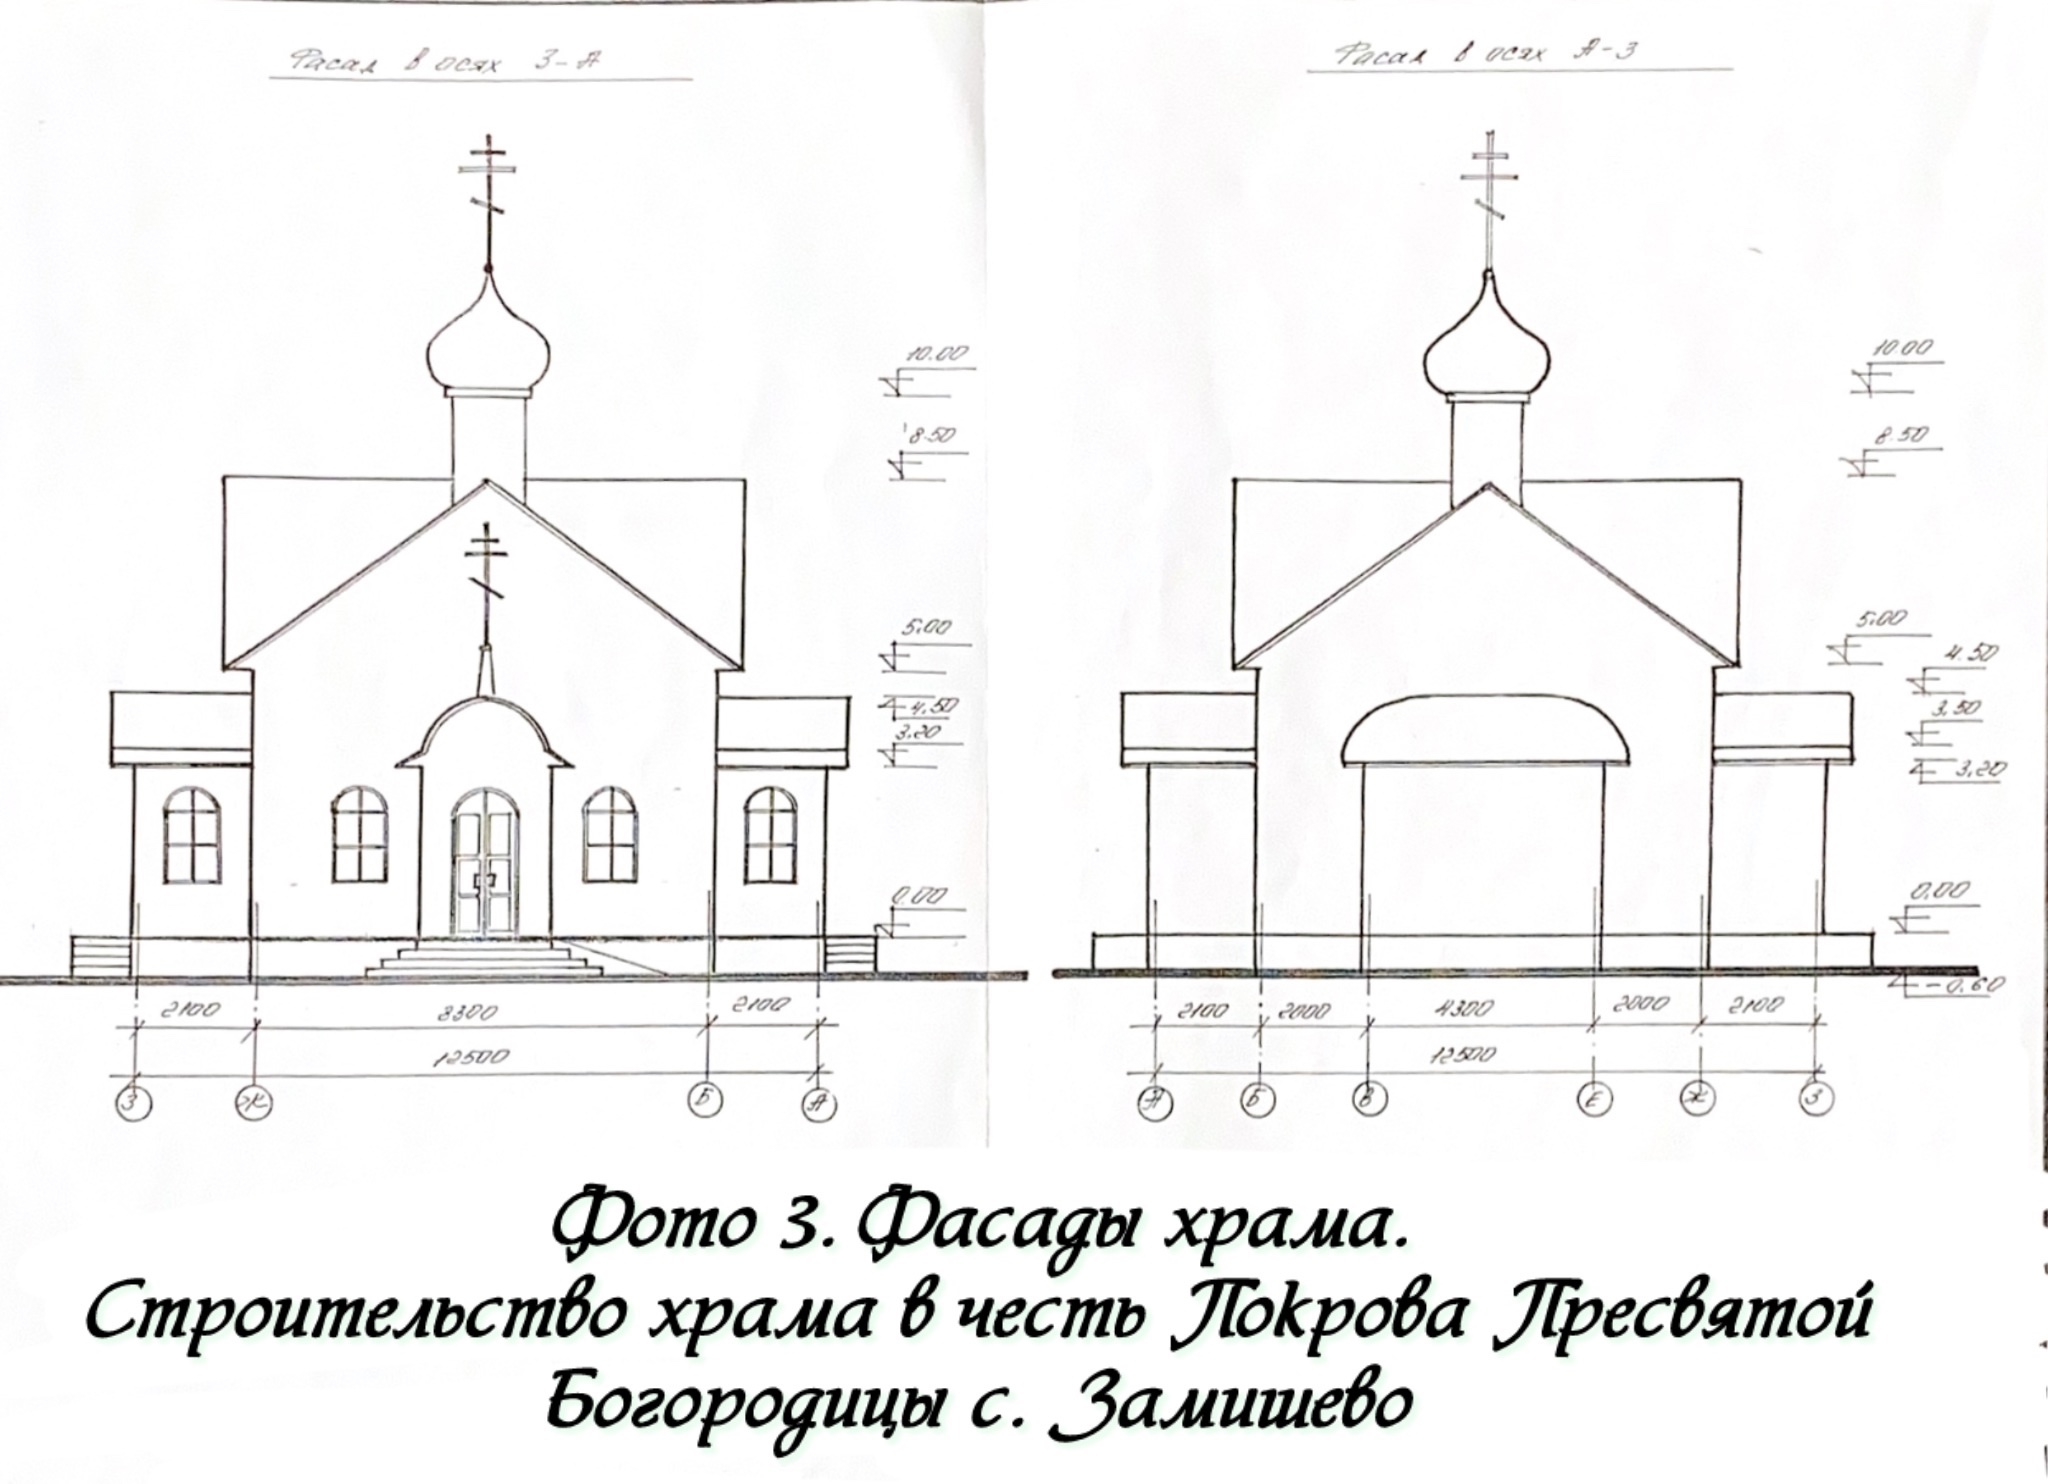 Фасад в осях З-А
10.00
8.50
5.00
4.50
3.20
0.00
2100 8300 2100
12500
З Ж Б А
Фасад в осях А-З
10.00
8.50
5.00
4.50
3.50
3.20
0.00
-0.60
2100 2000 4300 2000 2100
12500
А Б В Е Ж З
Фото 3. Фасады храма.
Строительство храма в честь Покрова Пресвятой
Богородицы с. Замишево